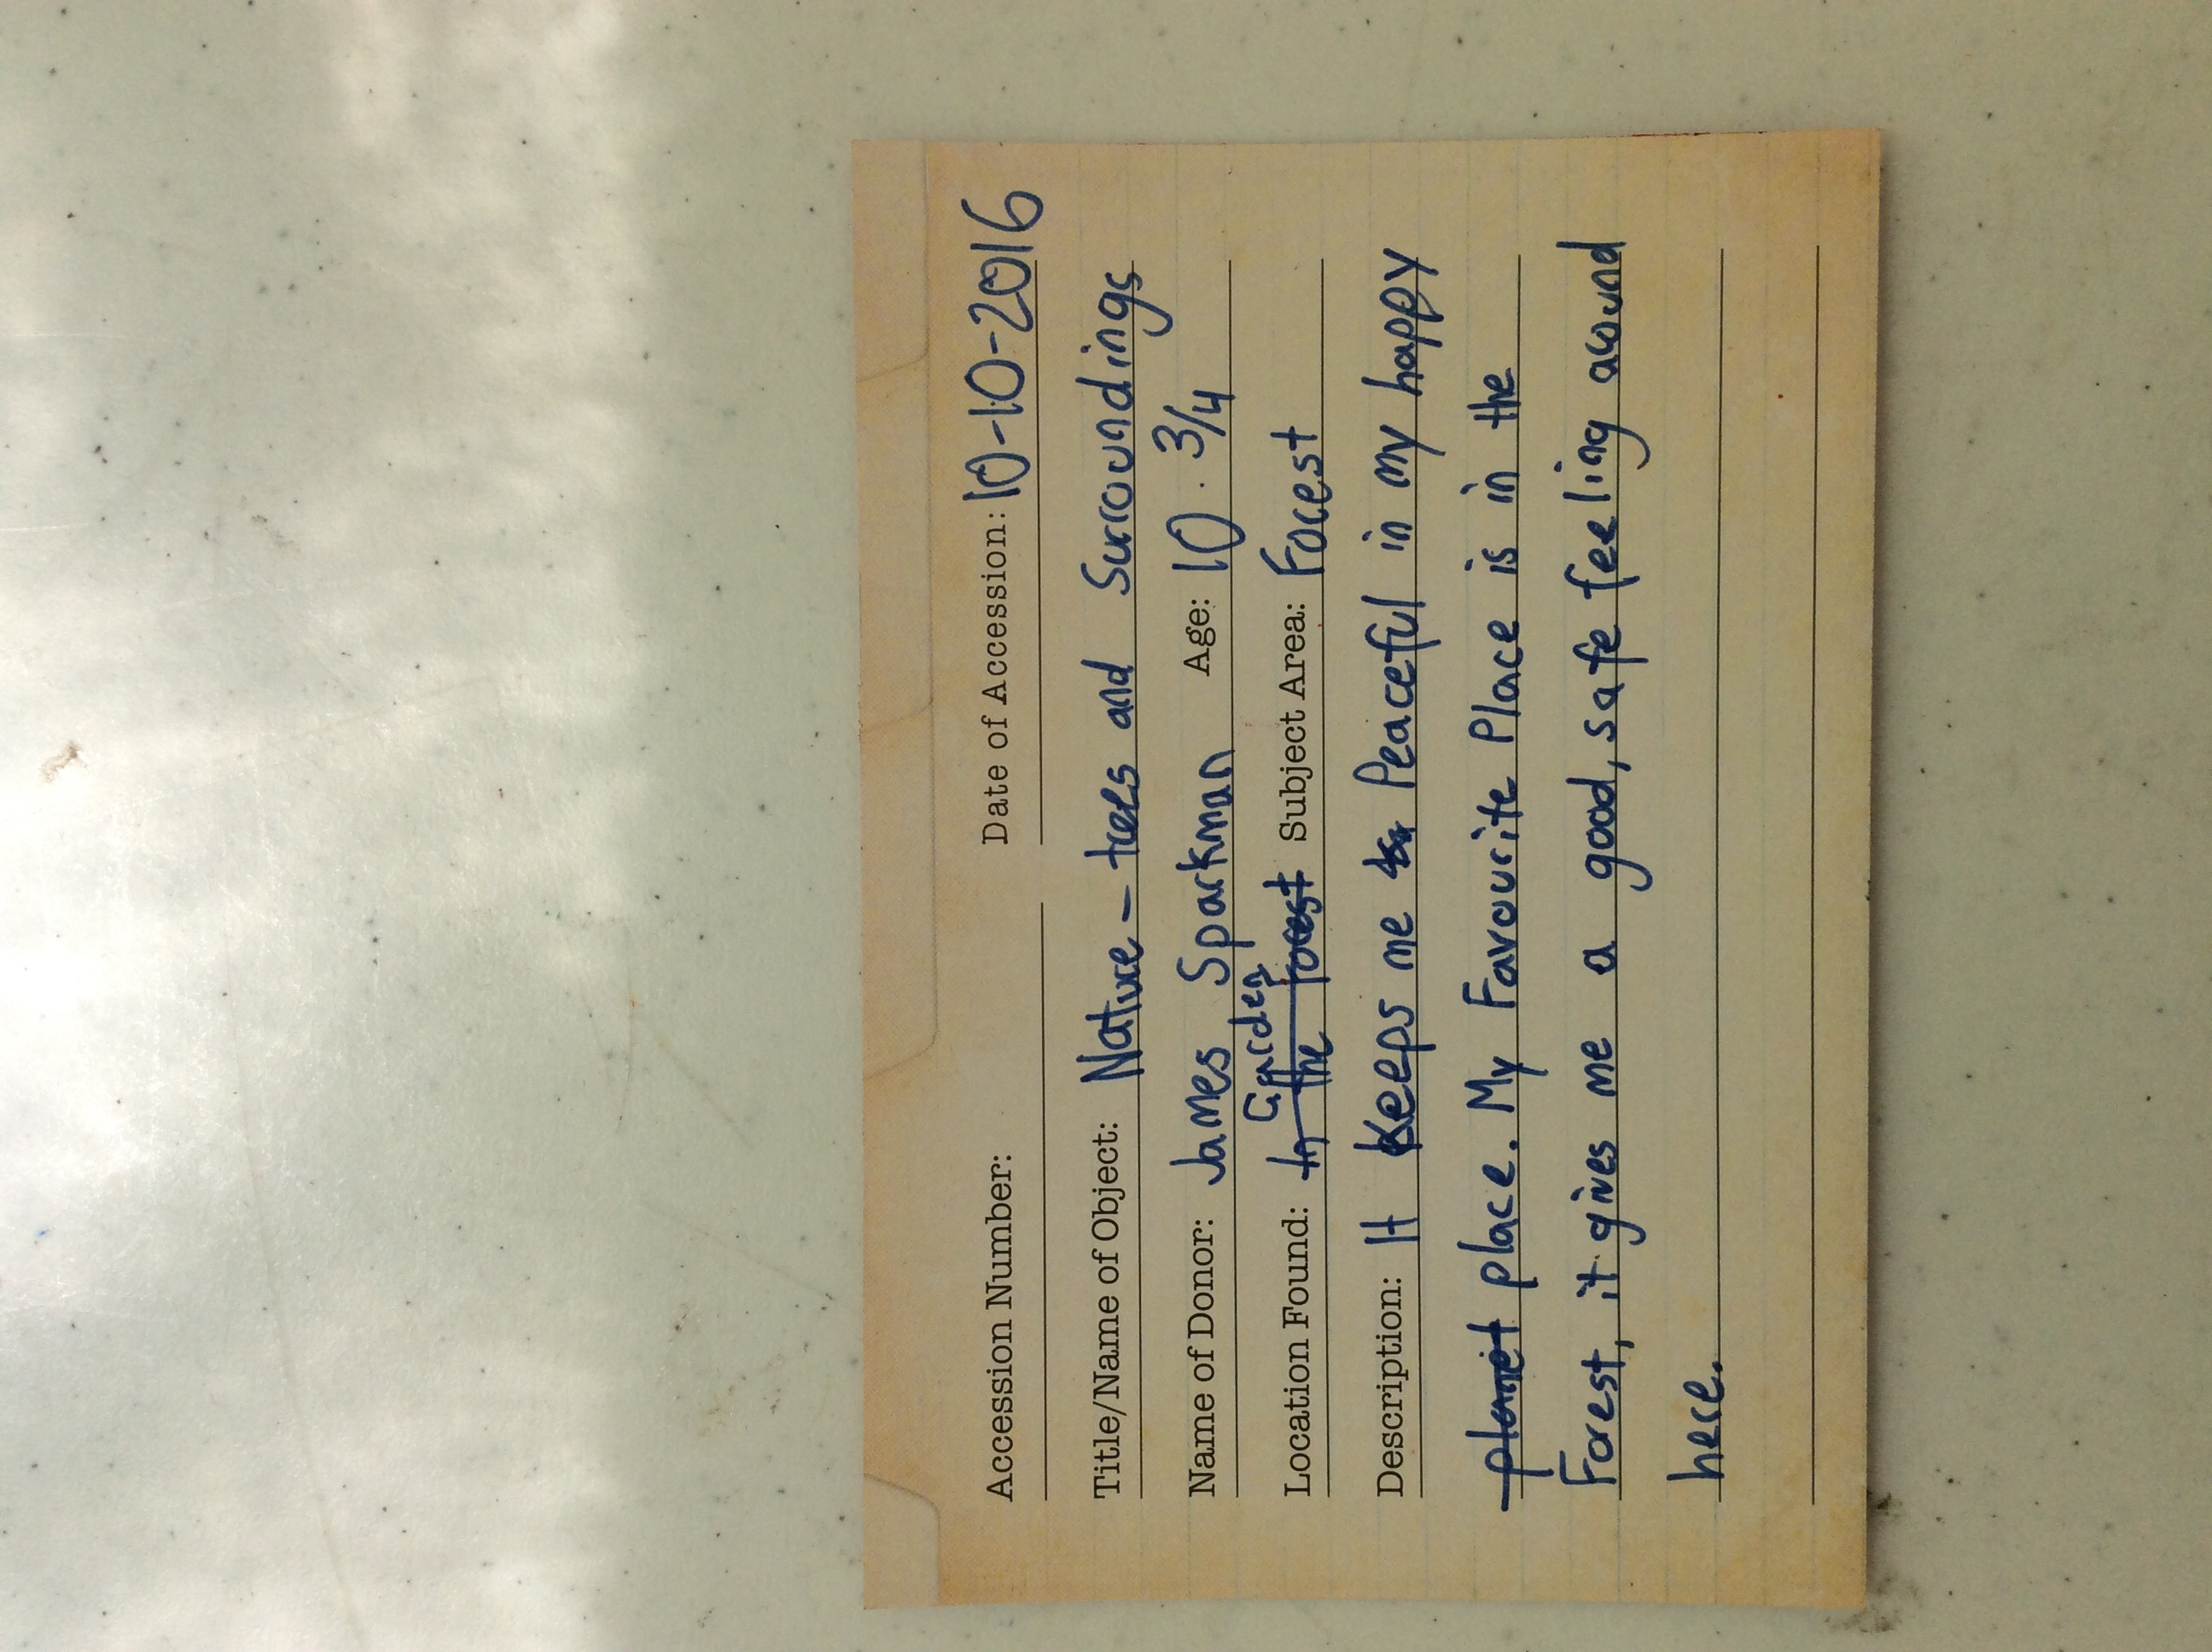 Accession Number: Date of Accession: 10-10-2016
Title/Name of Object: Nature - trees and Surroundings
Name of Donor: James Sparkman Age: 10 . 3/4
Garden
Location Found: In the forest Subject Area: Forest
Description: It Keeps me Peaceful in my happy
planet place. My Favourite Place is in the
Forest, it gives me a good, safe feeling around
here.